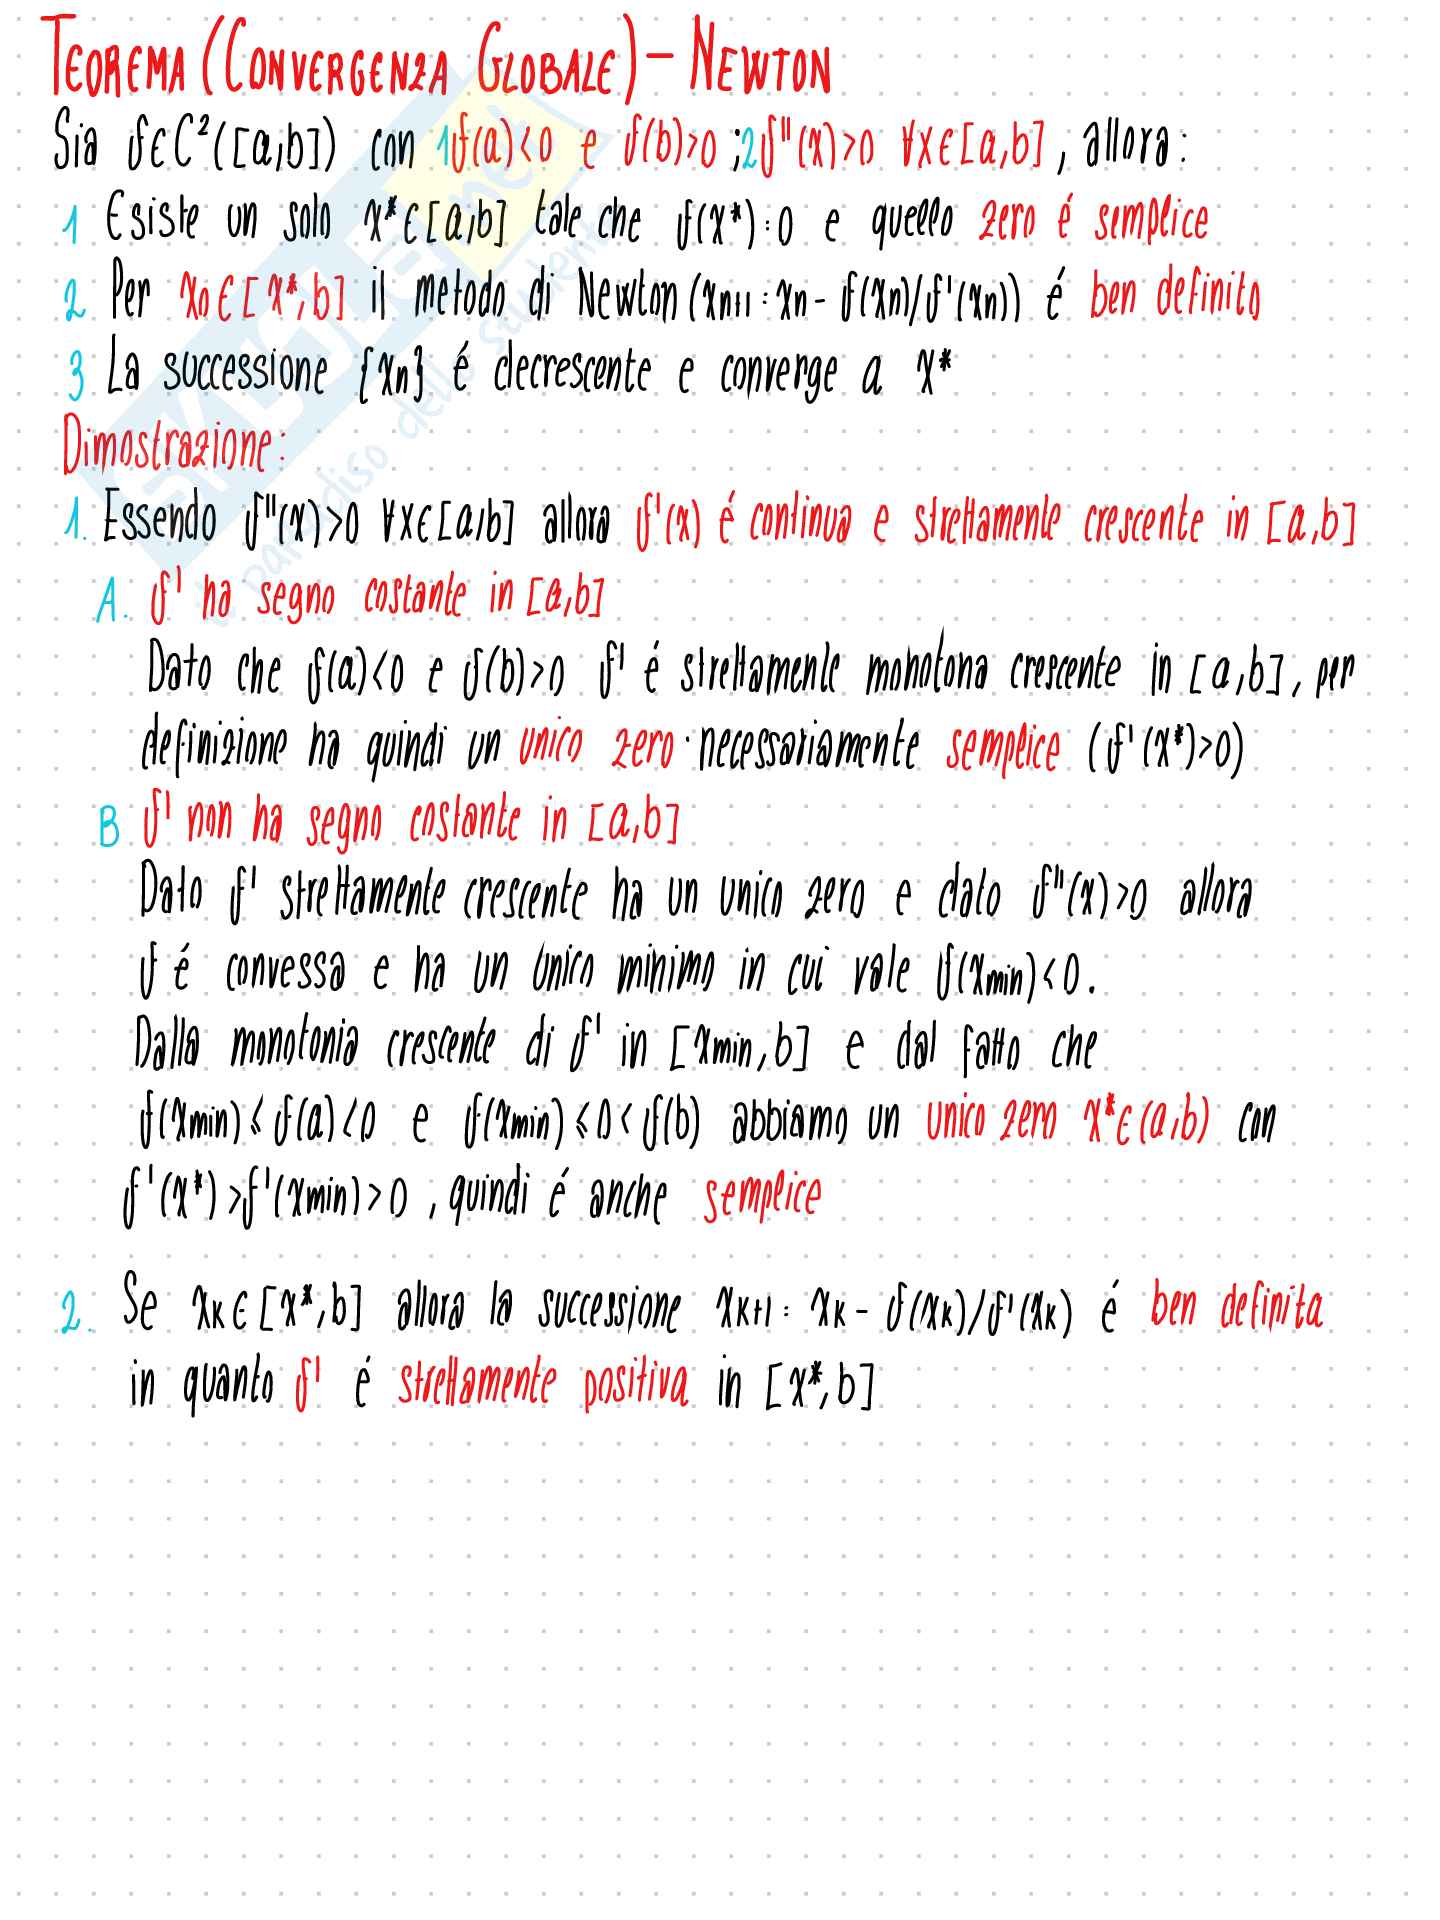 TEOREMA (CONVERGENZA GLOBALE) - NEWTON
Sia f∈C²([a,b]) con 1 f(a)<0 e f(b)>0 ; 2 f''(x)>0 ∀x∈[a,b], allora:
1 Esiste un solo x*∈[a,b] tale che f(x*)=0 e quello zero é semplice
2 Per x0∈[x*,b] il metodo di Newton (xn+1 = xn - f(xn)/f'(xn)) é ben definito
3 La successione {xn} é decrescente e converge a x*
Dimostrazione:
1. Essendo f''(x)>0 ∀x∈[a,b] allora f'(x) é continua e strettamente crescente in [a,b]
A. f' ha segno costante in [a,b]
Dato che f(a)<0 e f(b)>0 f' é strettamente monotona crescente in [a,b], per
definizione ha quindi un unico zero · necessariamente semplice (f'(x*)>0)
B f' non ha segno costante in [a,b]
Dato f' strettamente crescente ha un unico zero e dato f''(x)>0 allora
f é convessa e ha un unico minimo in cui vale f(xmin)<0.
Dalla monotonia crescente di f' in [xmin,b] e dal fatto che
f(xmin)≤f(a)<0 e f(xmin)≤0<f(b) abbiamo un unico zero x*∈(a,b) con
f'(x*)>f'(xmin)>0, quindi é anche semplice
2. Se xk∈[x*,b] allora la successione xk+1 = xk - f(xk)/f'(xk) é ben definita
in quanto f' é strettamente positiva in [x*,b]
SKUOLA.net
il paradiso dello studente